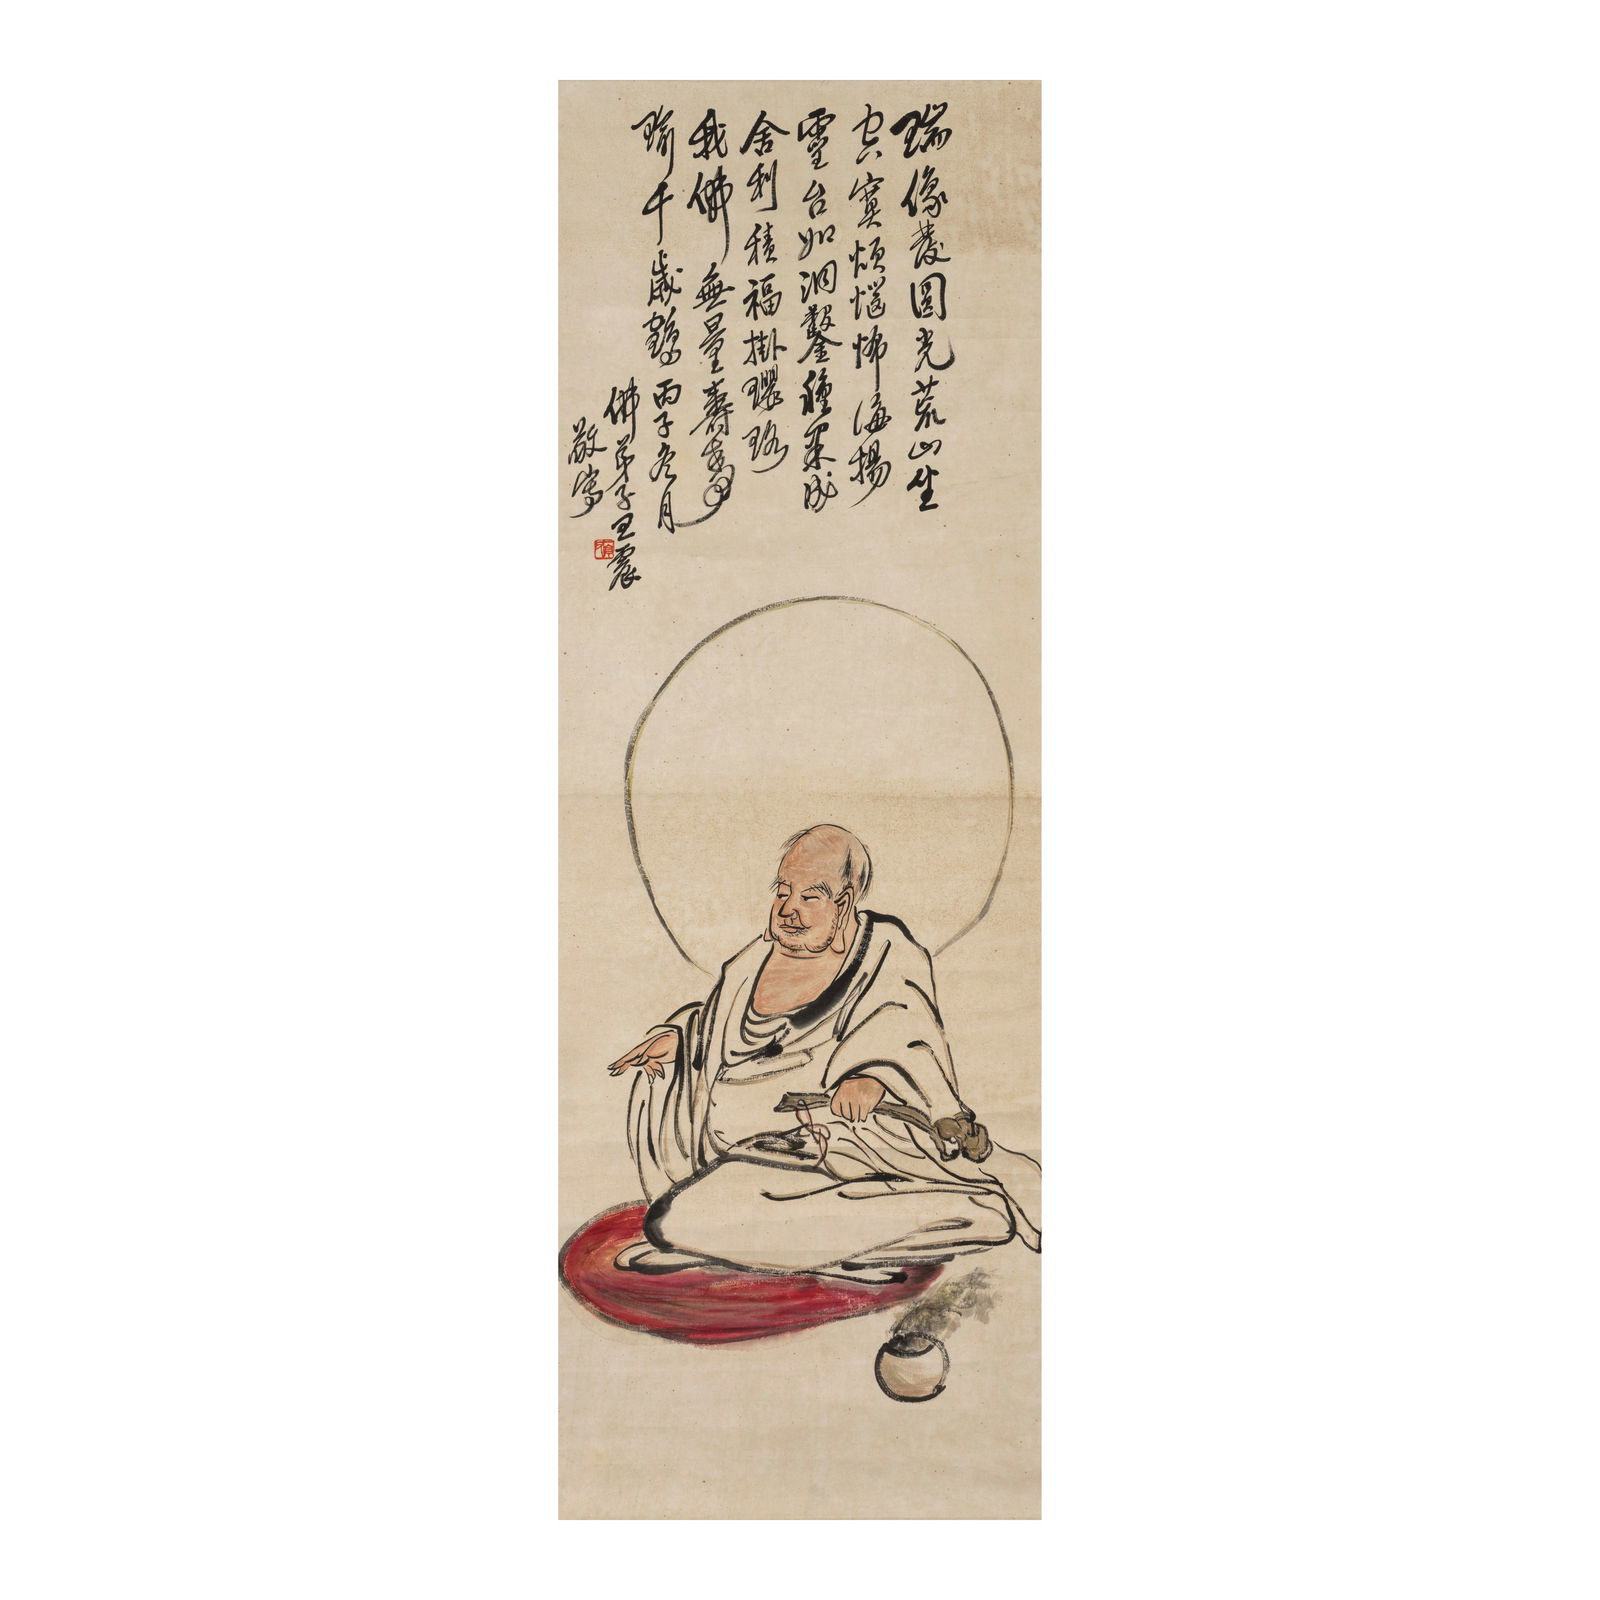 瑞像發圓光荒山坐
寂寞煩惱怖海揚
靈台如洞鑿種果成
舍利積福掛瓔珞
我佛無量壽壽
瑜千歲鶴丙子冬月
佛弟子王震
敬寫